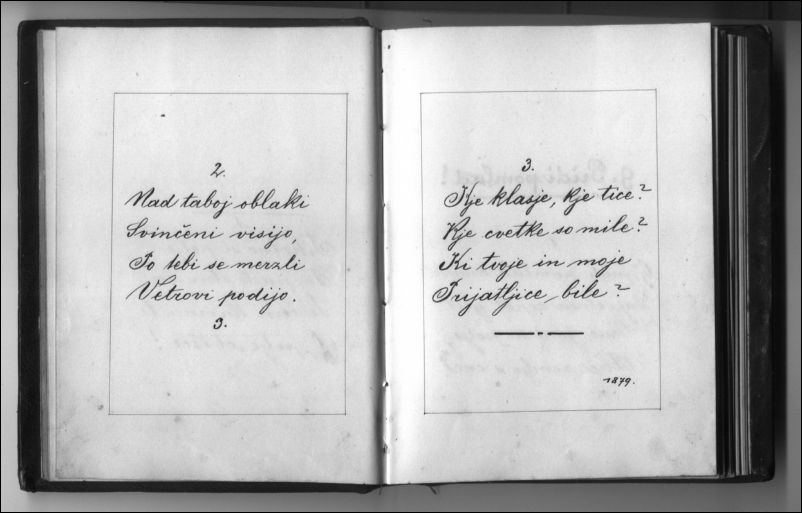 2.
Nad taboj oblaki
Svinčeni visijo,
Po tebi se merzli
Vetrovi podijo.
3.
3.
Kje klasje, kje tice?
Kje cvetke so mile?
Ki tvoje in moje
Prijatljice bile?
1879.